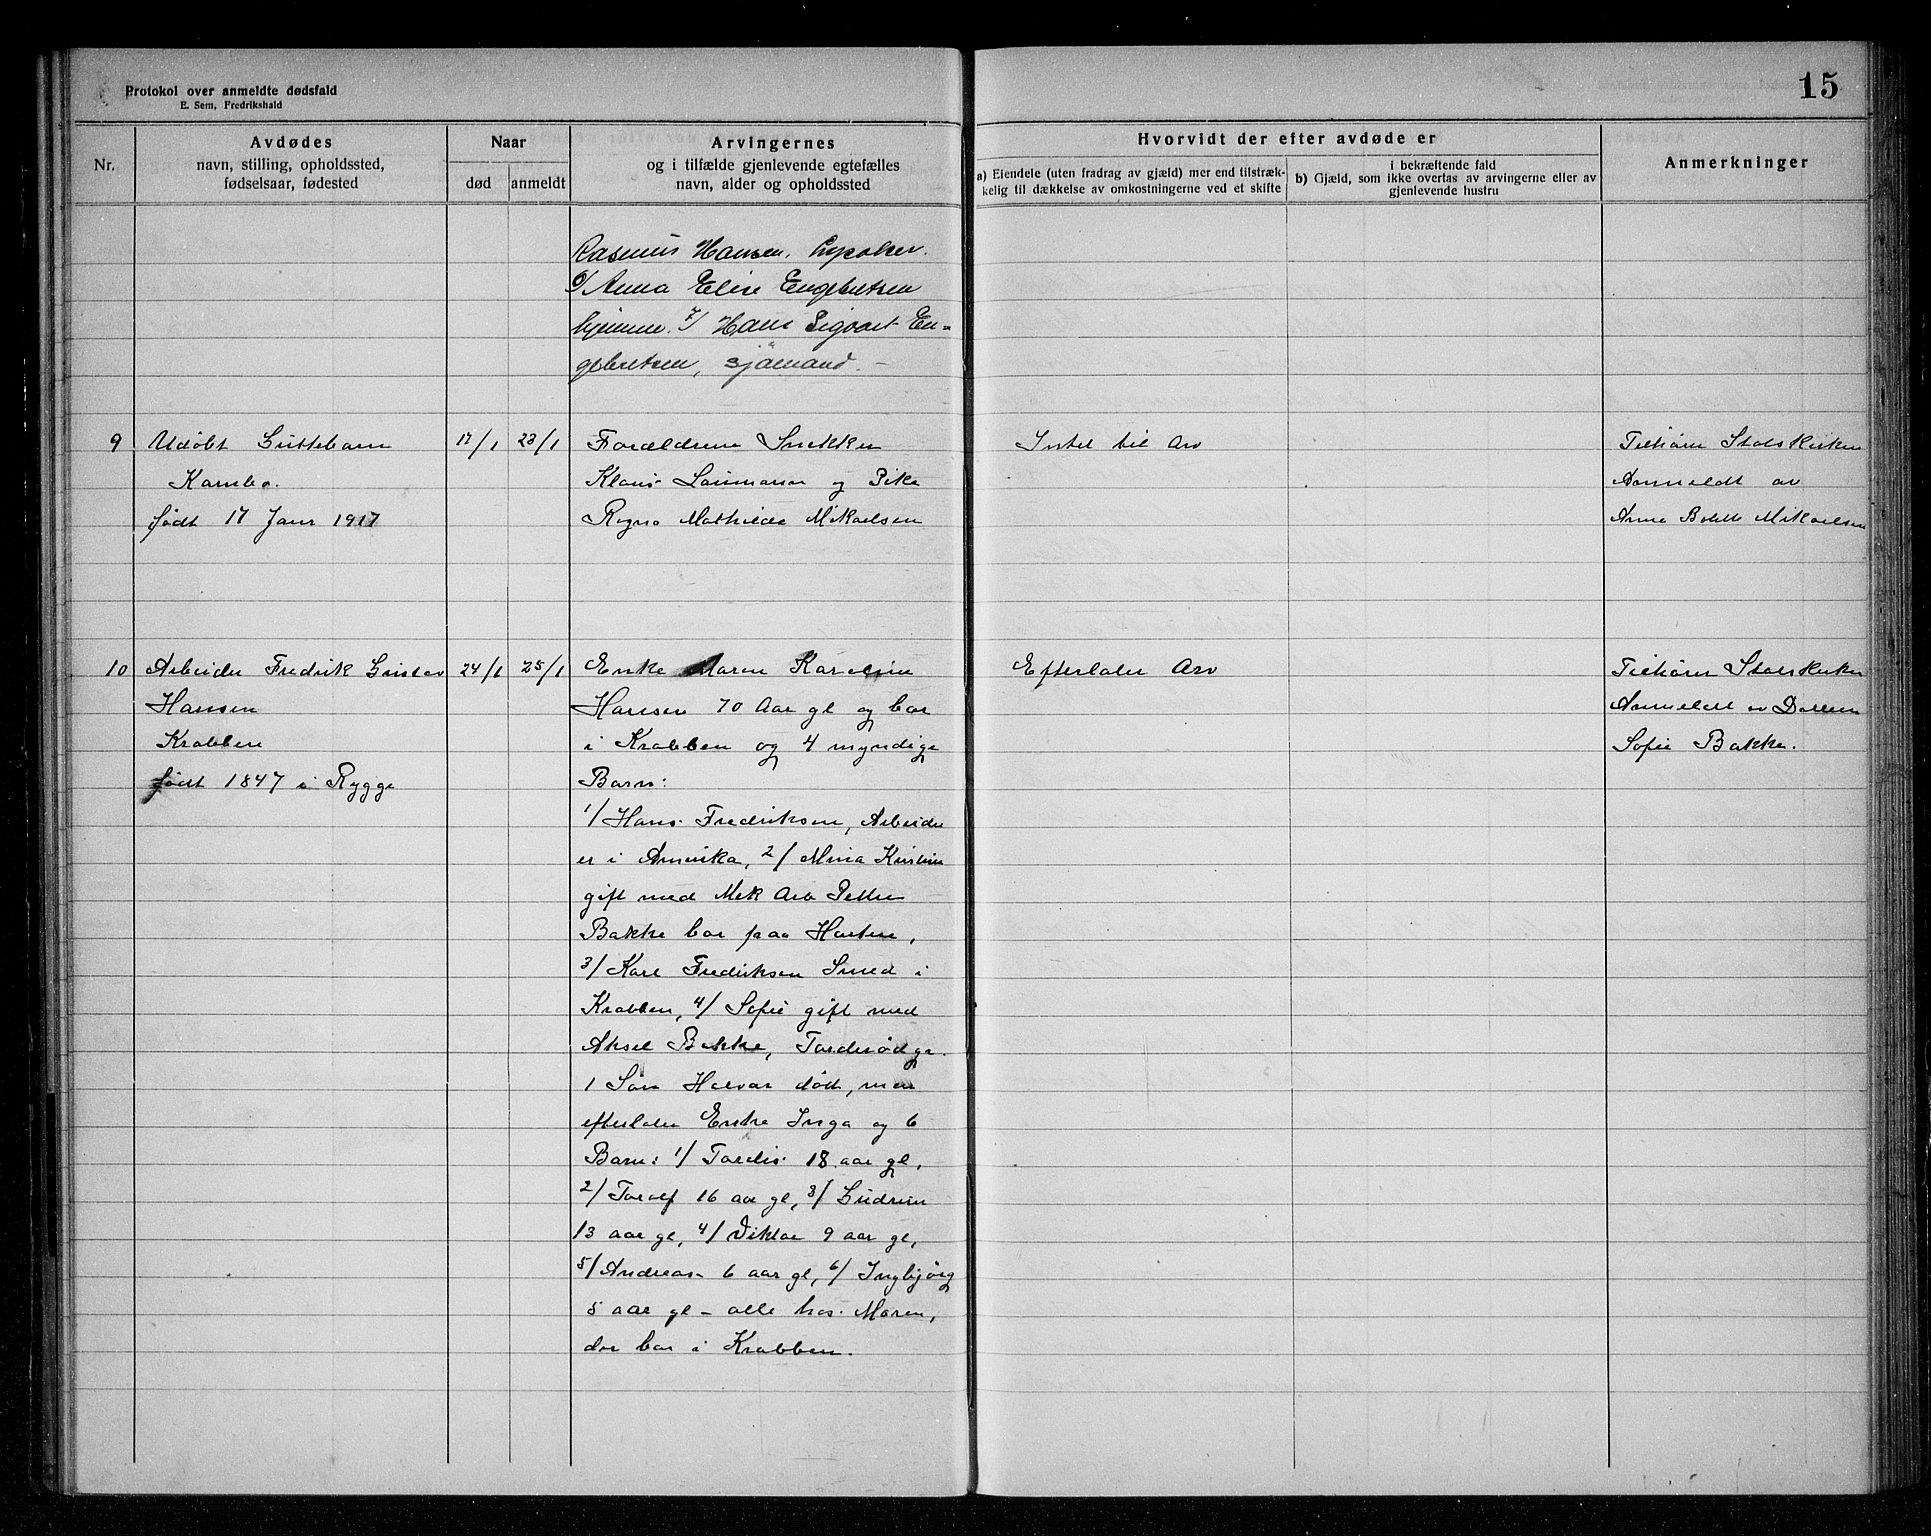 Protokol over anmeldte dødsfald
E. Sem, Fredrikshald
15
Nr.
Avdødes
navn, stilling, opholdssted,
fødselsaar, fødested
Naar
død
anmeldt
Arvingernes
og i tilfælde gjenlevende egtefælles
navn, alder og opholdssted
Hvorvidt der efter avdøde er
a) Eiendele (uten fradrag av gjæld) mer end tilstræk-
kelig til dækkelse av omkostningerne ved et skifte
i bekræftende fald
b) Gjæld, som ikke overtas av arvingerne eller av
gjenlevende hustru
Anmerkninger
Rasmus Hansen,
6/ Anna Elise Engebretsen
hjemme. 7/ Hans Sigvart En-
gebretsen, sjømand. -
9
Udøbt Guttebarn
Kambo.
født 17 Janr 1917
17/1
23/1
Forældrene Snekker
Klaus Laumann og Pike
Ragna Mathilde Mikaelsen
Intet til Arv
Tilhører Statskirken
Anmeldt av
Anna Bolette Mikaelsen
10
Arbeider Fredrik Gustav
Hansen
Krabben
født 1847 i Rygge
24/1
25/1
Enke Maren Karoline
Hansen 70 Aar gl og bor
i Krabben og 4 myndige
Barn:
1/ Hans Fredriksen, Arbeider
er i Amerika, 2/ Mina Kristine
gift med Mek Arb Petter
Bakke bor paa Horten,
3/ Karl Fredriksen Smed i
Krabben, 4/ Sofie gift med
Aksel Bakke, Torderød ge.
1 Søn Halvar død, men
efterlader Enke Inga og 6
Barn: 1/ Tordis 18 aar gl,
2/ Torolf 16 aar gl, 3/ Gudrun
13 aar gl, 4/ Viktor 9 aar gl,
5/ Andreas 6 aar gl, 6/ Ingbjørg
5 aar gl - alle hos Moren,
der bor i Krabben.
Efterlader Arv
Tilhører Statskirken
Anmeldt av Datteren
Sofie Bakke.